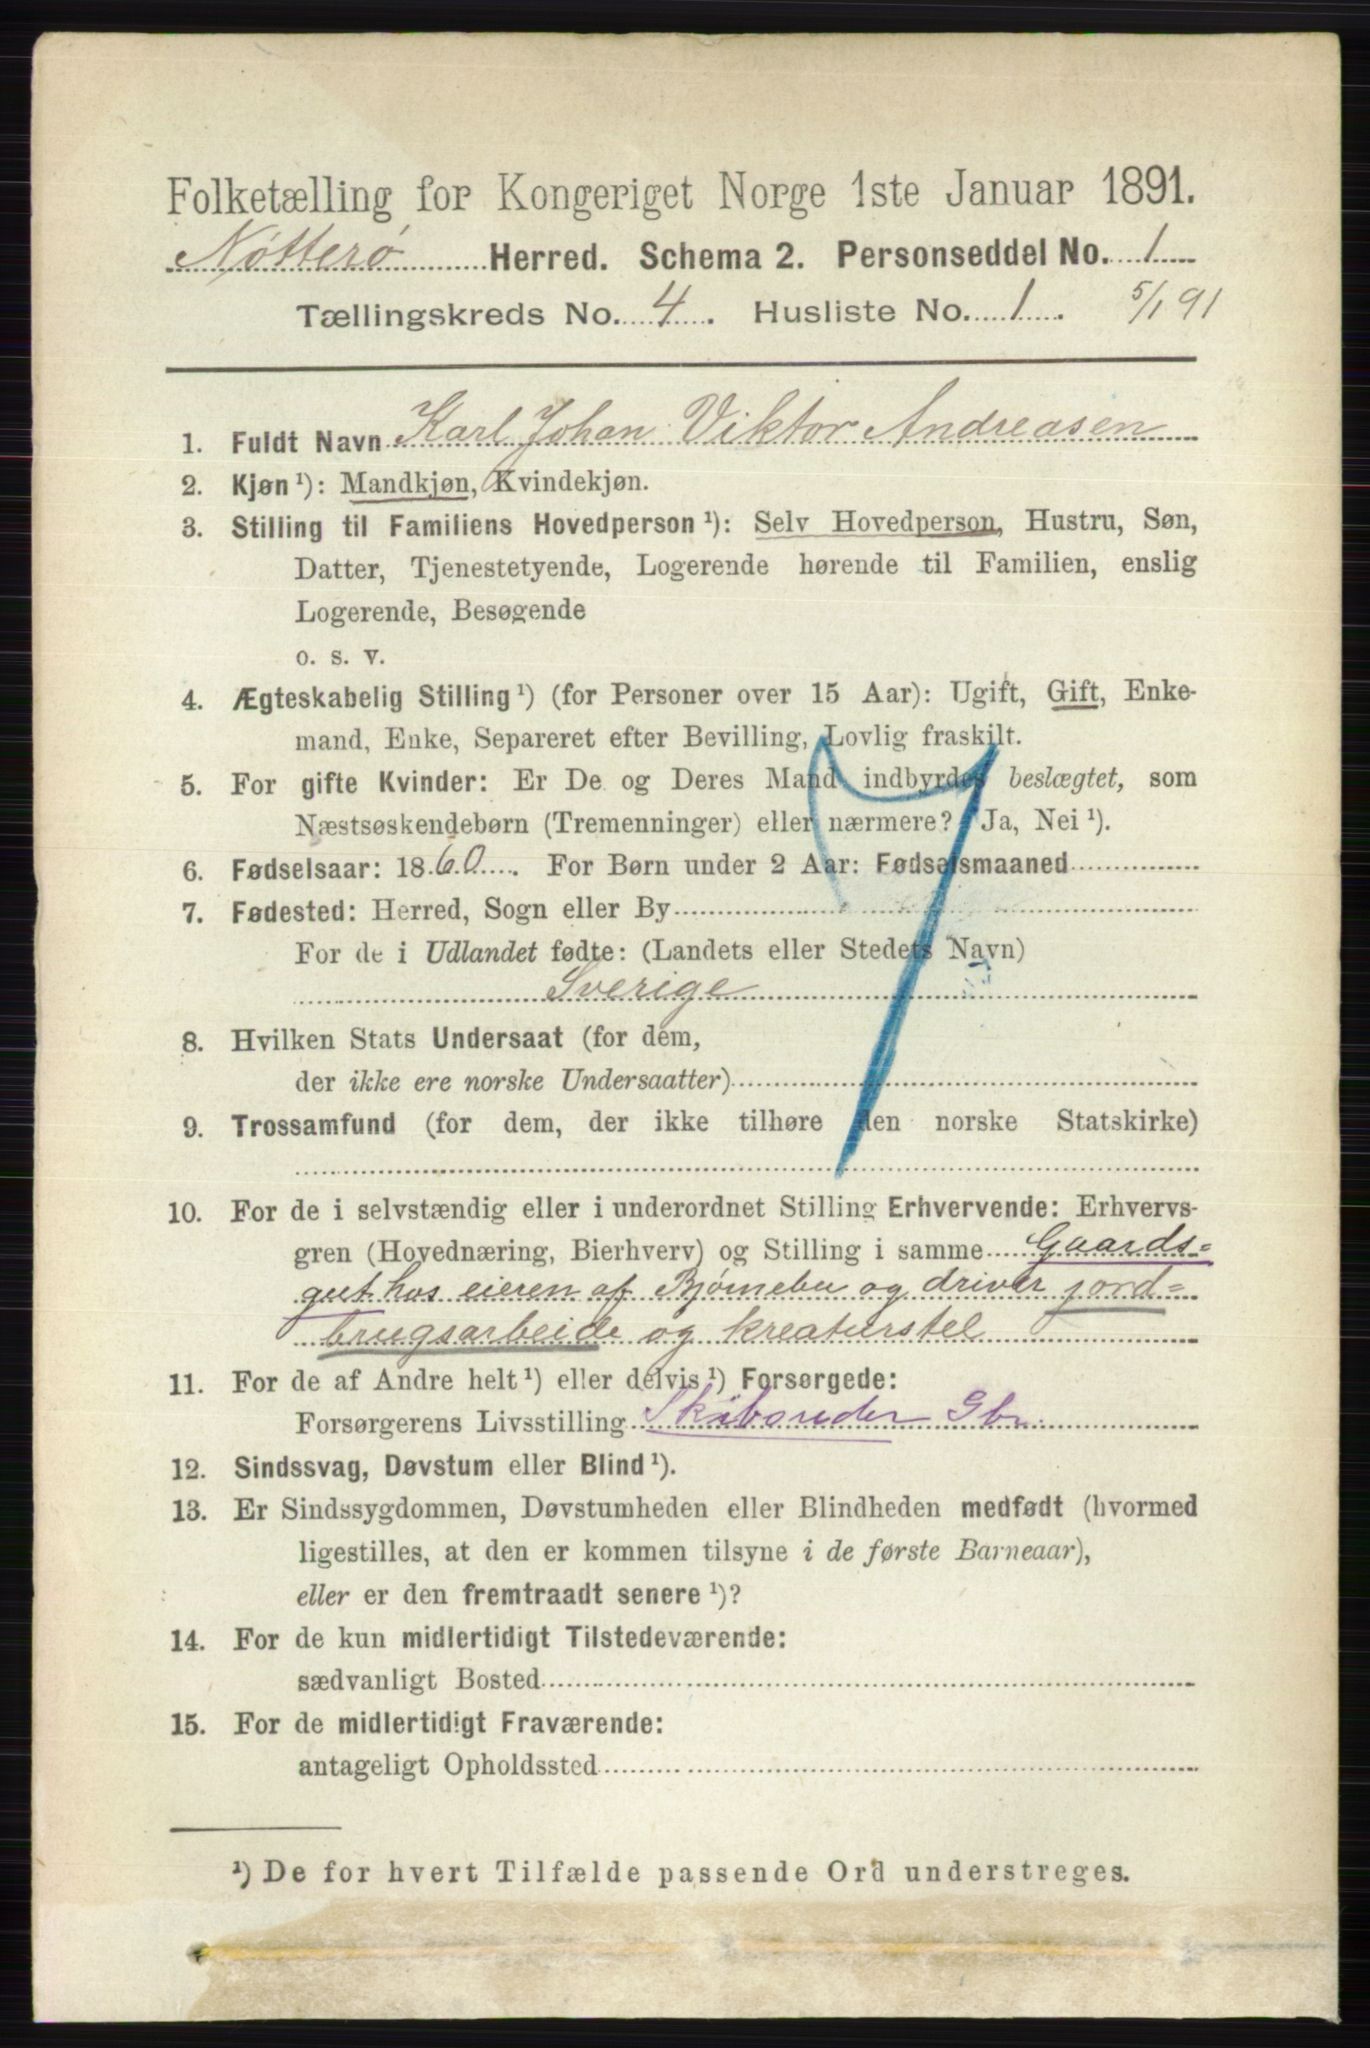 Folketælling for Kongeriget Norge 1ste Januar 1891.
Nøtterø Herred. Schema 2. Personseddel No. 1
Tællingskreds No. 4. Husliste No. 1. 5/1 91
1. Fuldt Navn Karl Johan Viktor Andreasen
2. Kjøn ¹): Mandkjøn, Kvindekjøn.
3. Stilling til Familiens Hovedperson ¹): Selv Hovedperson, Hustru, Søn,
Datter, Tjenestetyende, Logerende hørende til Familien, enslig
Logerende, Besøgende
o. s. v.
4. Ægteskabelig Stilling ¹) (for Personer over 15 Aar): Ugift, Gift, Enke-
mand, Enke, Separeret efter Bevilling, Lovlig fraskilt.
5. For gifte Kvinder: Er De og Deres Mand indbyrdes beslægtet, som
Næstsøskendebørn (Tremenninger) eller nærmere? Ja, Nei ¹).
6. Fødselsaar: 1860. For Børn under 2 Aar: Fødselsmaaned
7. Fødested: Herred, Sogn eller By
For de i Udlandet fødte: (Landets eller Stedets Navn)
Sverige
8. Hvilken Stats Undersaat (for dem,
der ikke ere norske Undersaatter)
9. Trossamfund (for dem, der ikke tilhøre den norske Statskirke)
10. For de i selvstændig eller i underordnet Stilling Erhvervende: Erhvervs-
gren (Hovednæring, Bierhverv) og Stilling i samme Gaards-
gut hos eieren af og driver jord-
brugsarbeide og kreaturstel
11. For de af Andre helt ¹) eller delvis ¹) Forsørgede:
Forsørgerens Livsstilling Skibsreder Gbr.
12. Sindssvag, Døvstum eller Blind ¹).
13. Er Sindssygdommen, Døvstumheden eller Blindheden medfødt (hvormed
ligestilles, at den er kommen tilsyne i de første Barneaar),
eller er den fremtraadt senere ¹)?
14. For de kun midlertidigt Tilstedeværende:
sædvanligt Bosted
15. For de midlertidigt Fraværende:
antageligt Opholdssted
¹) De for hvert Tilfælde passende Ord understreges.